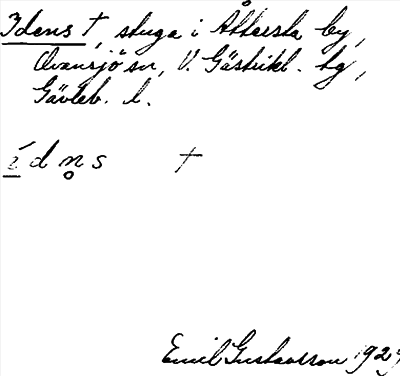 Idens †, stuga i Åttersta by,
Ovansjö sn, V. Gästrikl. tg,
Gävleb. l.
í d n̥ s †
Emil Gustavsson 1929